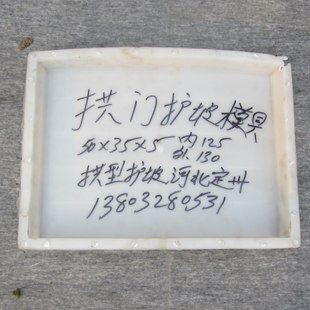 拱门护坡模具
50×35×5 内125
外130
拱型护坡河北定州
13803280531